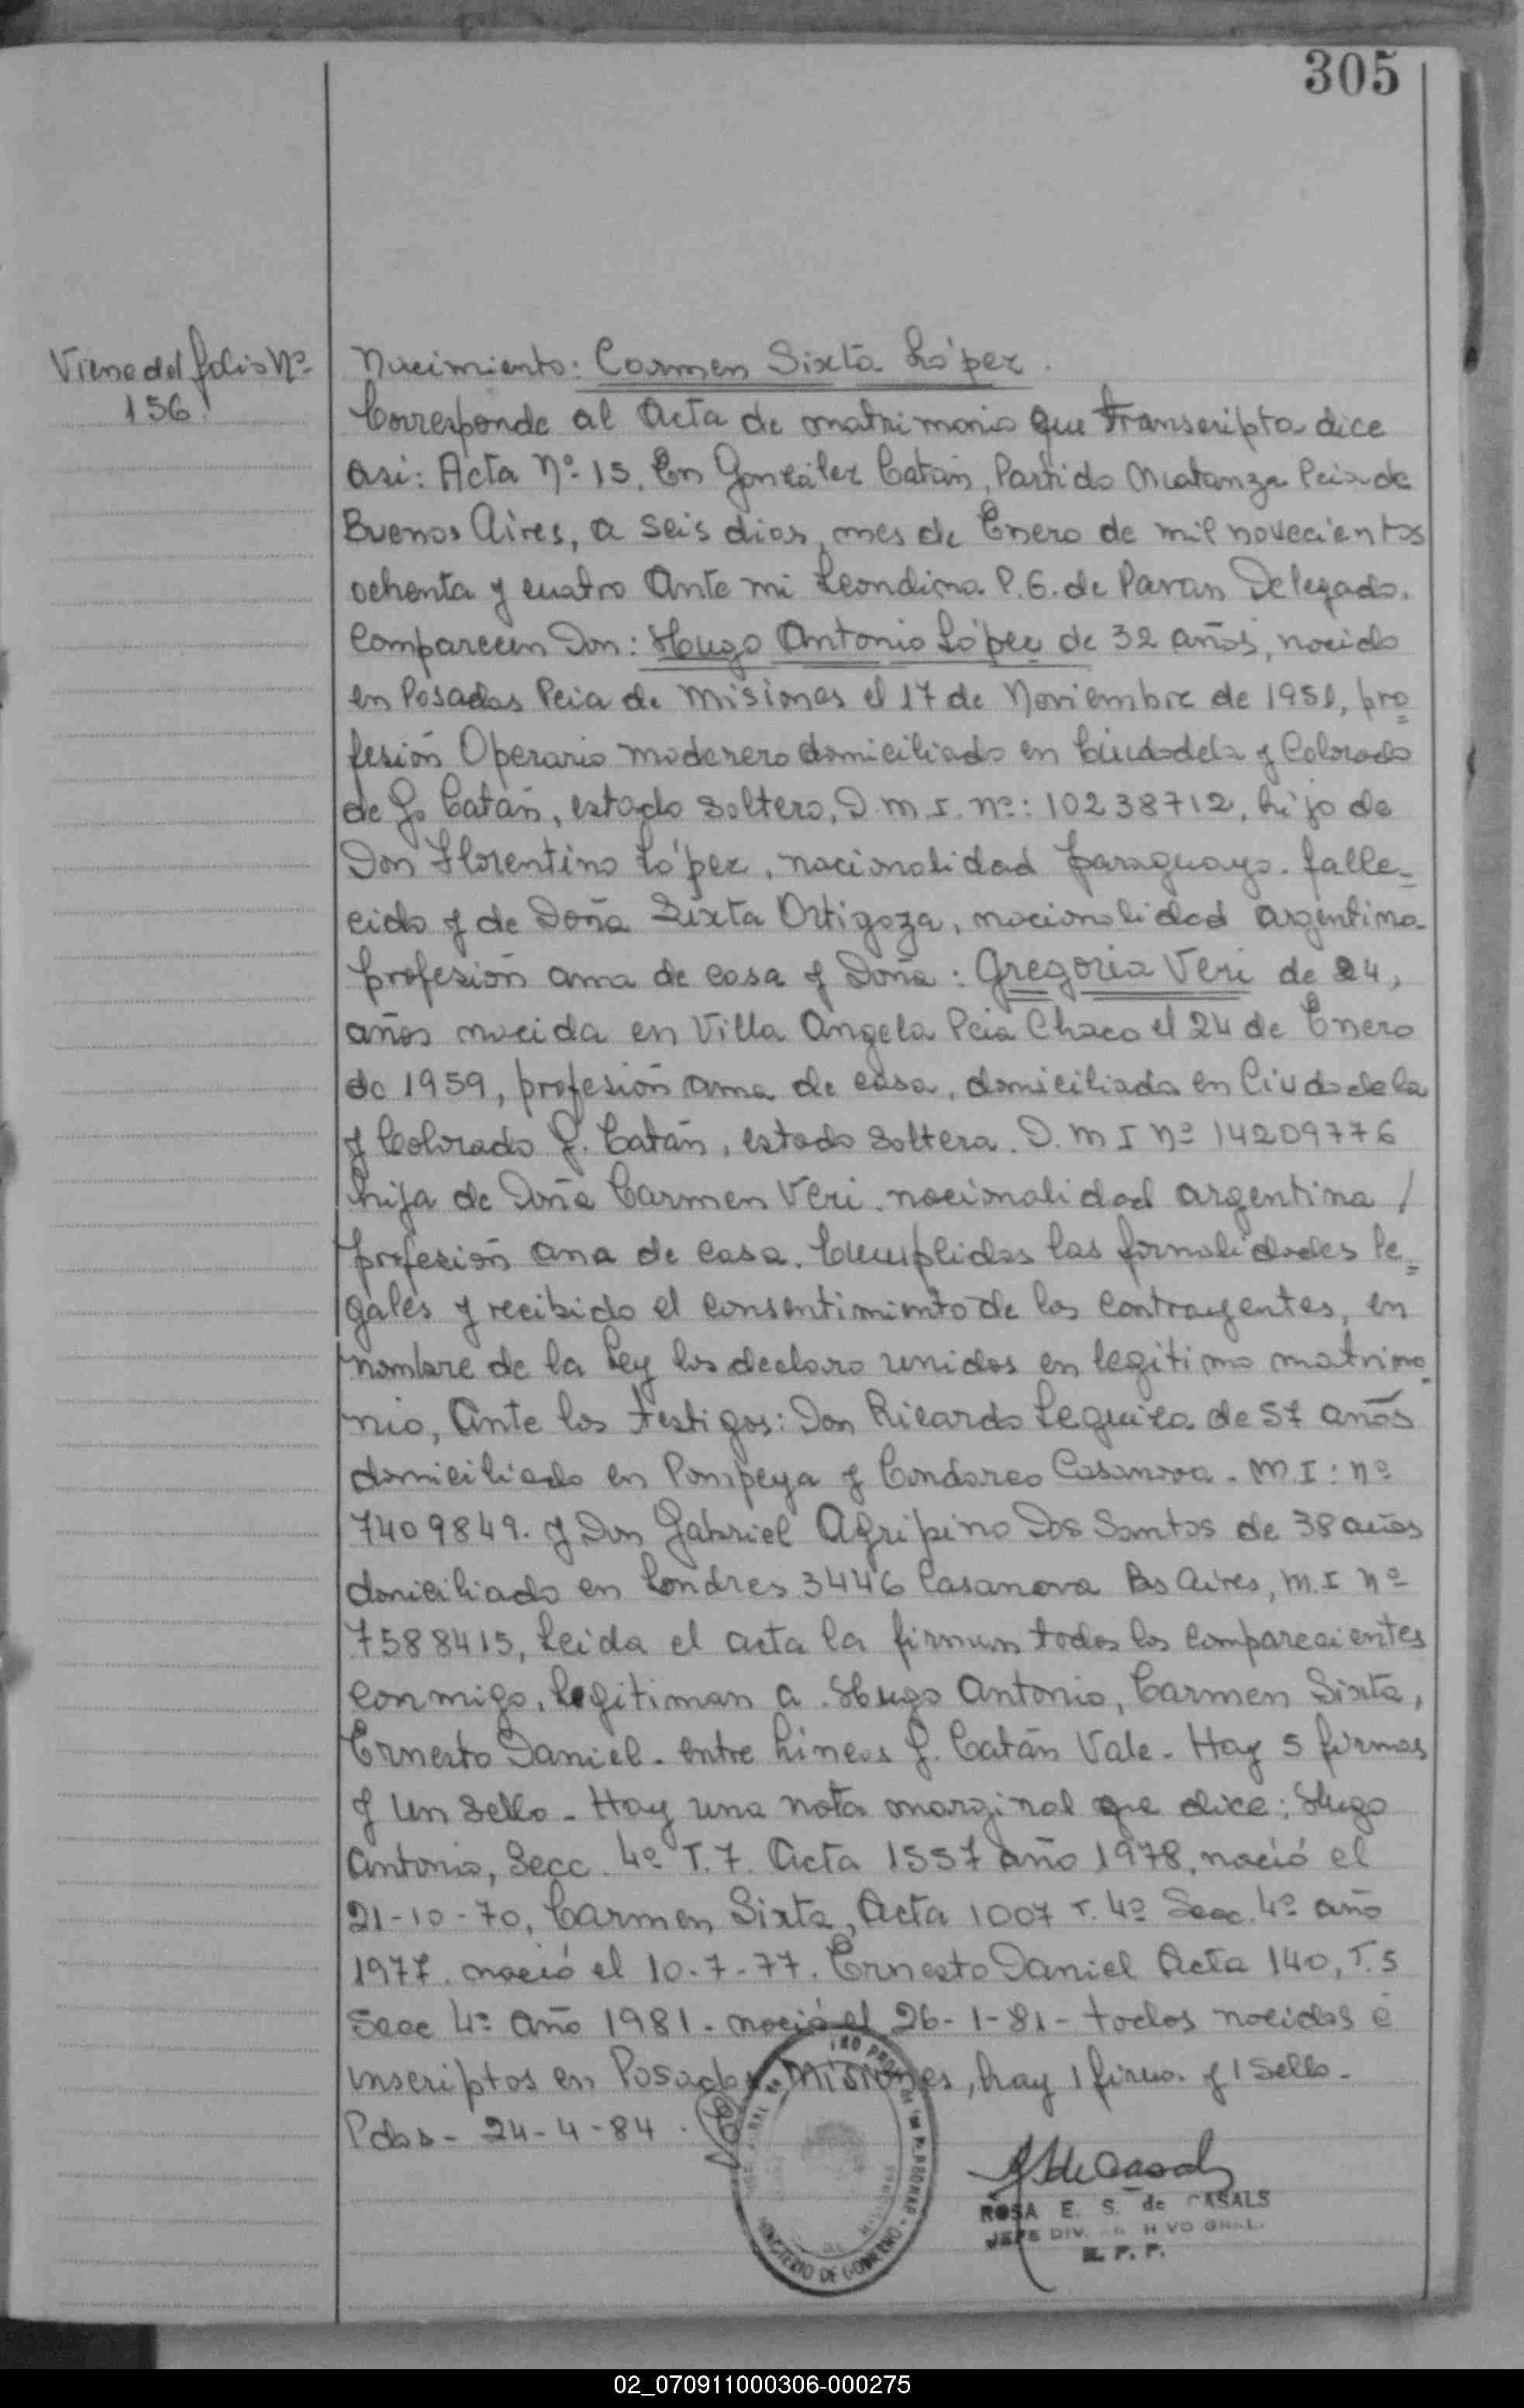 305
Viene del folio Nº
156
Nacimiento: Carmen Sixta López.
Corresponde al Acta de matrimonio que transcripta dice
asi: Acta Nº 15. En González Catán, Partido Matanza Pcia de
Buenos Aires, a seis dias, mes de Enero de mil novecientos
ochenta y cuatro Ante mi Leondina P. G. de Pavan Delegado.
Comparecen Don: Hugo Antonio López de 32 años, nacido
en Posadas Pcia de Misiones el 17 de Noviembre de 1951, pro
fesión Operario maderero domiciliado en Ciudadela y Colorado
de G. Catán, estado soltero, D.M.I. nº: 10238712, hijo de
Don Florentino López, nacionalidad paraguayo. falle-
cido y de Doña Sixta Ortigoza, nacionalidad argentina-
profesión ama de casa y Doña: Gregoria Veri de 24,
años nacida en Villa Angela Pcia Chaco el 24 de Enero
de 1959, profesión ama de casa, domiciliada en Ciudadela
y Colorado G. Catán, estado soltera. D.M I Nº 14209776
hija de Doña Carmen Veri. nacionalidad argentina /
profesión ama de casa. Cumplidas las formalidades le=
gales y recibido el consentimiento de los contrayentes, en
nombre de la Ley los declaro unidos en legitimo matrimo
nio, Ante los testigos: Don Ricardo Leguiza de 57 años
domiciliado en Pompeya y Condarco Casanova. M I: nº
7409849. y Don Gabriel Agripino Dos Santos de 38 años
domiciliado en Londres 3446 Casanova Bs Aires, M.I Nº
7588415, Leida el acta la firman todos los comparecientes
conmigo. Legitiman a Hugo Antonio, Carmen Sixta,
Ernesto Daniel. entre lineas G. Catán Vale. Hay 5 firmas
y un sello - Hay una nota marginal que dice: Hugo
Antonio, Secc. 4º T. 7. Acta 1557 año 1978, nació el
21-10-70, Carmen Sixta, Acta 1007 T. 4º Secc. 4º año
1977. nació el 10-7-77. Ernesto Daniel Acta 140, T. 5
Secc 4º año 1981. nació el 26-1-81- todos nacidos é
inscriptos en Posadas, Misiones, hay 1 firma. y 1 sello-
Pdas - 24-4-84.
MINISTERIO DE GOBIERNO
ROSA E. S. de CASALS
JEFE DIV. ARCHIVO GRAL.
R. P. P.
02_070911000306-000275